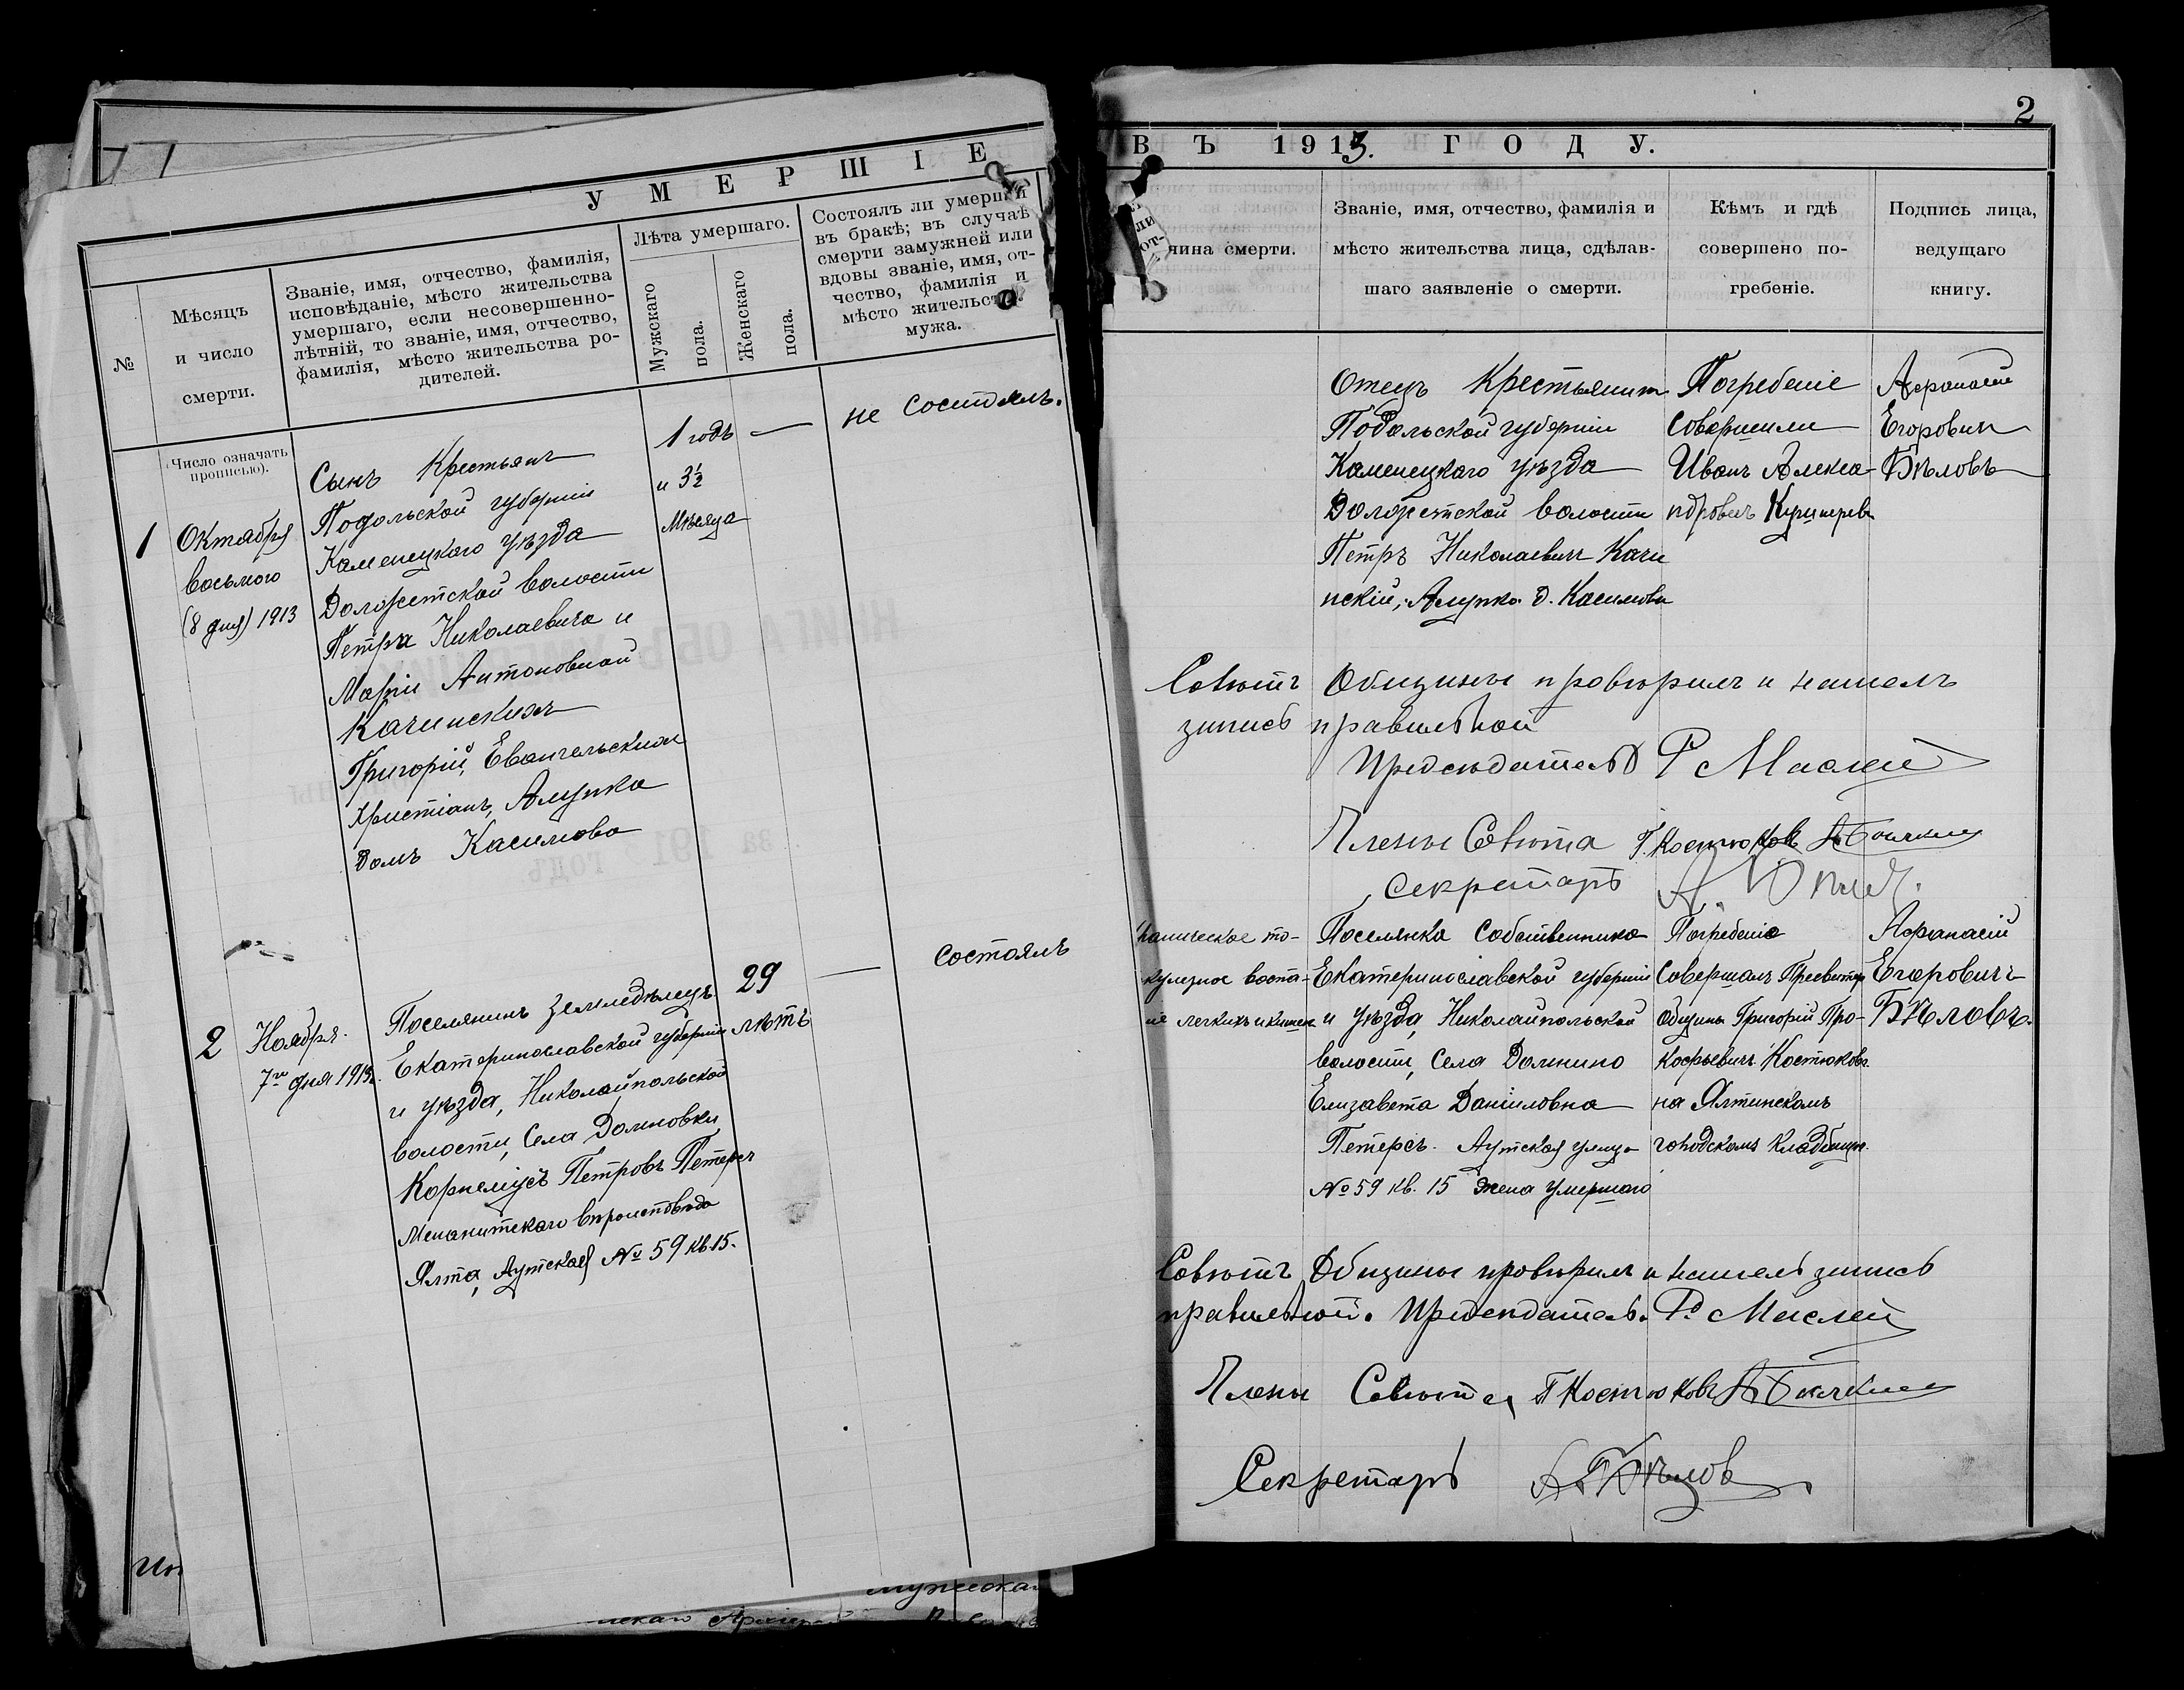 УМЕРШІЕ
№
Мѣсяцъ
и число
смерти.
Званіе, имя, отчество, фамилія,
исповѣданіе, мѣсто жительства
умершаго, если несовершенно-
лѣтній, то званіе, имя, отчество,
фамилія, мѣсто жительства ро-
дителей.
Лѣта умершаго.
Мужскаго
пола.
Женскаго
пола.
Состоялъ ли умершій
въ бракѣ; въ случаѣ
смерти замужней или
вдовы званіе, имя, от-
чество, фамилія и
мѣсто жительства
мужа.
(Число означать
прописью).
1
Октября
восьмого
(8 дня) 1913
Сынъ Крестьянъ
Подольской губерніи
Каменецкаго уѣзда
Должетской волости
Петра Николаевича и
Маріи Антоновной
Качинскихъ
Григорій, Евангельскихъ
Христіанъ, Алупка
домъ Касимова
1 годъ
и 3½
Мѣсяца
—
не состоялъ.
2
Ноября
7го дня 1913г.
Поселянинъ Земледѣлецъ
Екатеринославской губерніи
и уѣзда, Николайпольской
волости, Села Долиновки
Корнеліусъ Петровъ Петерсъ
Менонитскаго вѣроисповѣда
Ялта, Аутская № 59 кв. 15.
29
лѣтъ
—
состоялъ
2
ВЪ 1913. ГОДУ.
чина смерти.
Званіе, имя, отчество, фамилія и
мѣсто жительства лица, сдѣлав-
шаго заявленіе о смерти.
Кѣмъ и гдѣ
совершено по-
гребеніе.
Подпись лица,
ведущаго
книгу.
Отецъ Крестьянинъ
Подольской губерніи
Каменецкаго уѣзда
Должетской волости
Петръ Николаевичъ Качи
нскій, Алупка д. Касимова
Погребеніе
Совершили
Иванъ Алекса
ндровичъ
Афанасій
Егоровичъ
Бѣловъ
Совѣтъ Общины провѣрилъ и нашелъ
запись правильной
Предсѣдатель Р Маслей
Члены Совѣта Г. Костюковъ
Секретарь
ку­лезное воспа-
іе легкихъ и кишек
Поселянка Собственника
Екатеринославской губерніи
и уѣзда, Николайпольской
волости, Села Долино
Елизавета Даніиловна
Петерсъ. Аутская улица
№ 59 кв. 15 жена умершаго
Погребеніе
Совершалъ Пресвитер
Общины Григорій Про-
кофьевичъ Костюковъ
на Ялтинскомъ
городскомъ кладбище.
Афанасій
Егоровичъ
Бѣловъ.
Совѣтъ Общины провѣрилъ и нашелъ запись
правильной. Предсѣдатель. Р Маслей
Члены Совѣта Г Костюковъ
Секретарь А Бѣлов